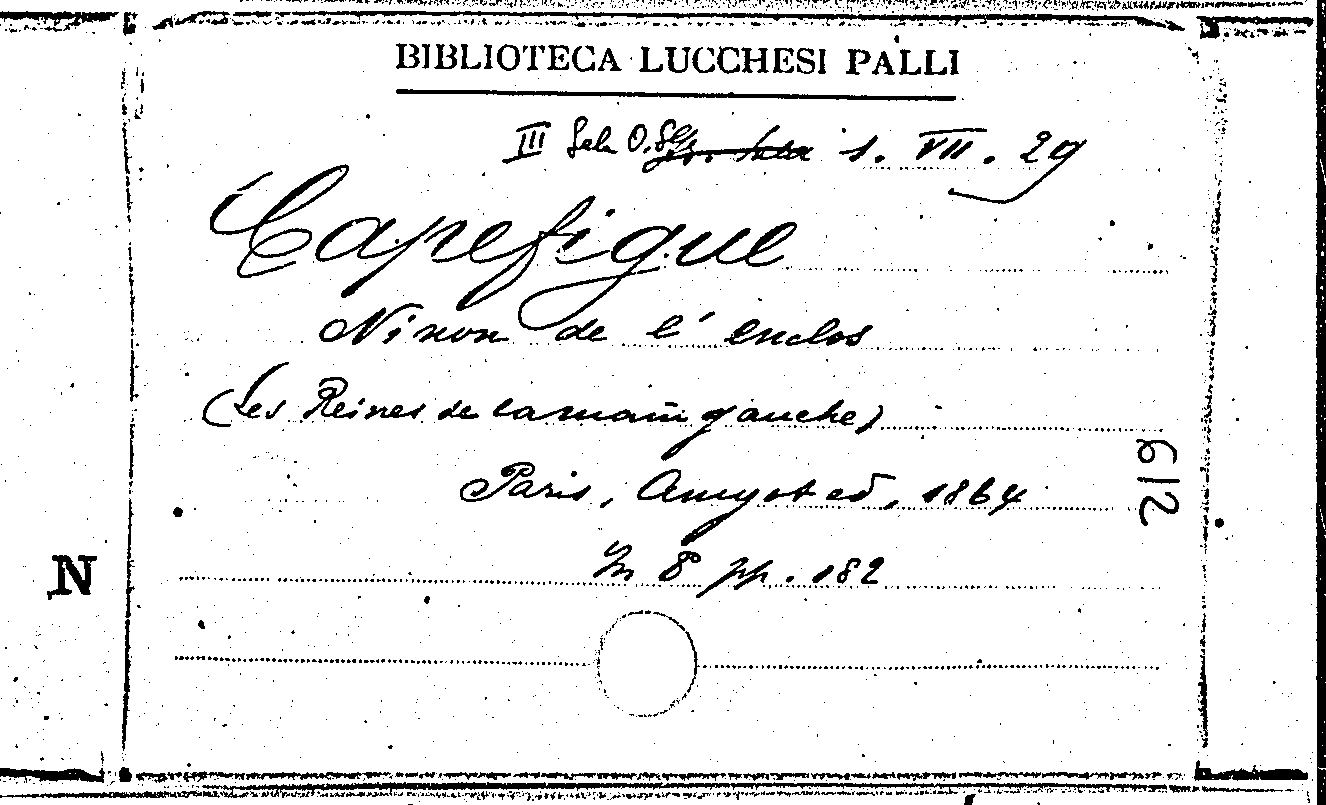 BIBLIOTECA LUCCHESI PALLI
III Sala 1. VII. 29
Capefigue
Ninon de l'enclos
(Les Reines de la main gauche)
Paris, Amyot ed, 1864
In 8 pp. 182
612
N